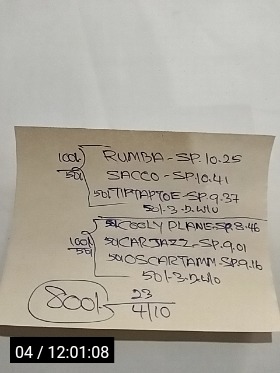 100/ RUMBA - SP. 10.25
50/ SACCO - SP. 10.41
50/ TIPTAPTOE - SP. 9.37
50/- 3 - D. W/O
50/ COOLY PLANE - SP. 8.46
100/ 50/ CAR JAZZ - SP. 9.01
50/ OSCAR TAMM - SP. 9.16
50/- 3 - D. W/O
800/- 23
4/10
04 / 12:01:08